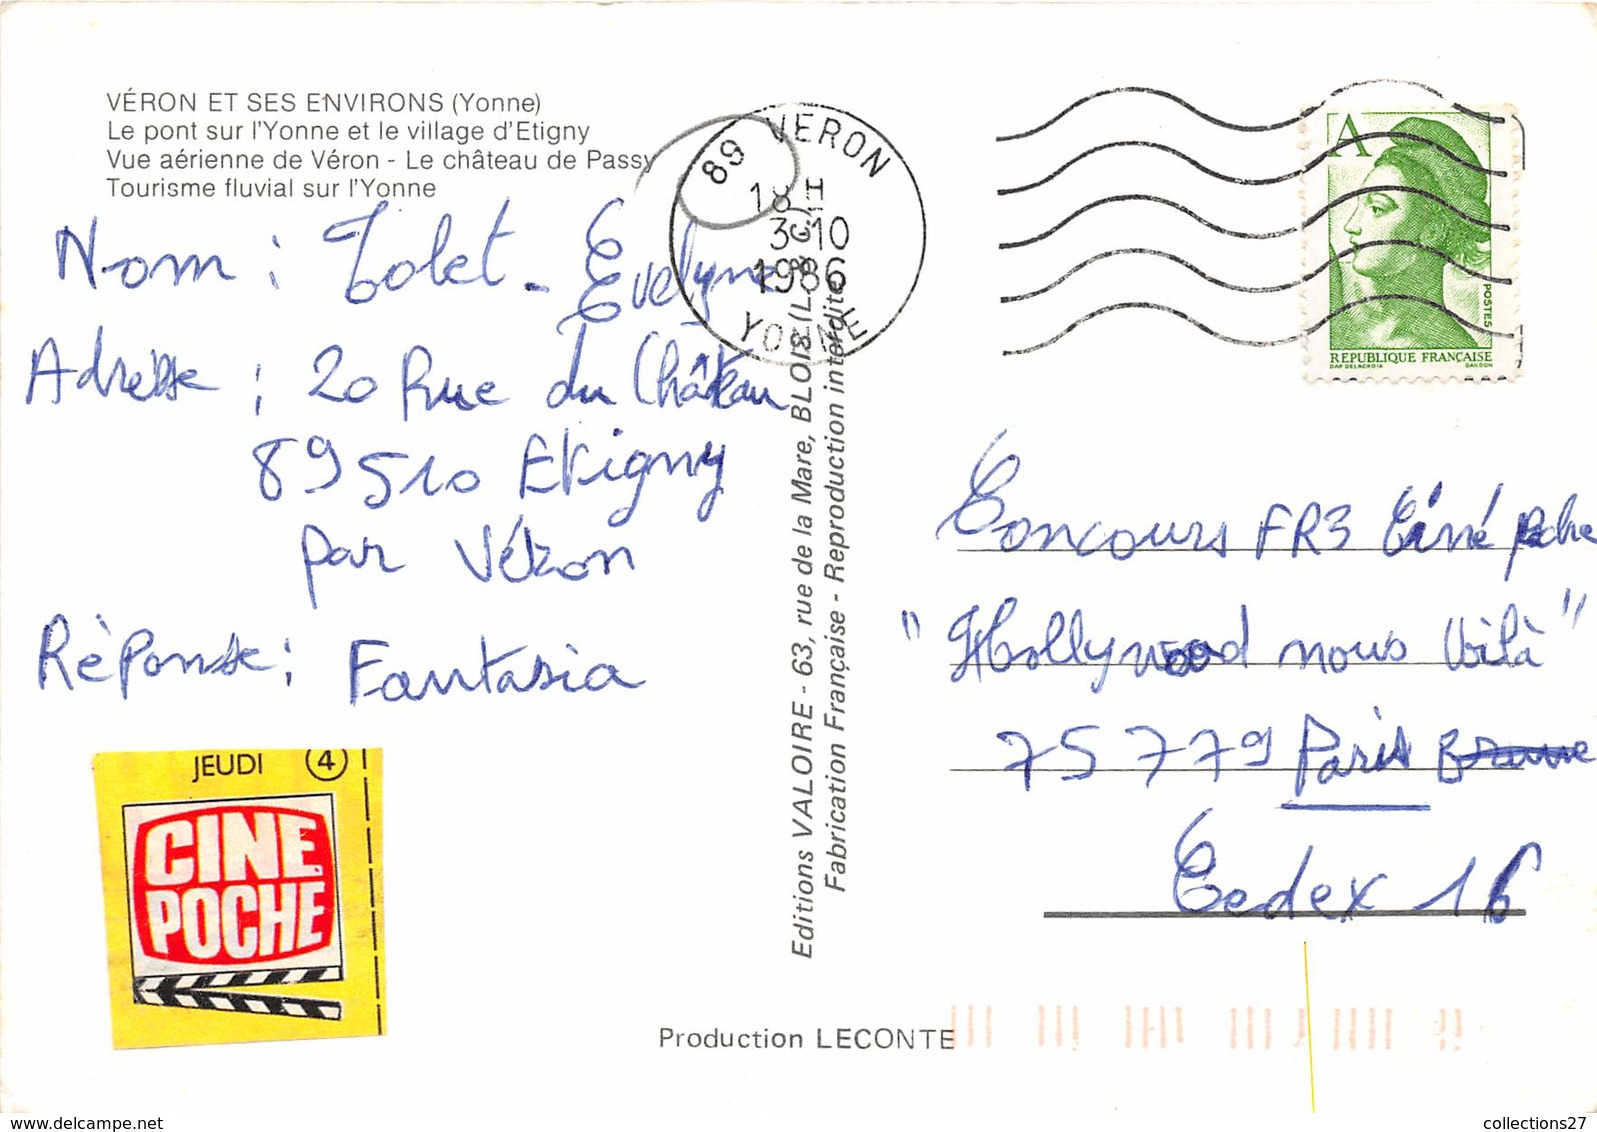 VÉRON ET SES ENVIRONS (Yonne)
Le pont sur l'Yonne et le village d'Etigny
Vue aérienne de Véron - Le château de Passy
Tourisme fluvial sur l'Yonne
Nom : Tolet - Evelyne
Adresse : 20 Rue du Château
89510 Etigny
par Véron
Réponse : Fantasia
JEUDI 4
CINE
POCHE
89 VERON
18 H
3-10
1986
YONNE
Editions VALOIRE - 63, rue de la Mare, BLOIS (L.
Fabrication Française - Reproduction interdite
Production LECONTE
A
POSTES
REPUBLIQUE FRANÇAISE
DAP DELACROIX GANDON
Concours FR3 Ciné poche
"Hollywood nous Voilà"
75779 Paris
Cedex 16
collections27